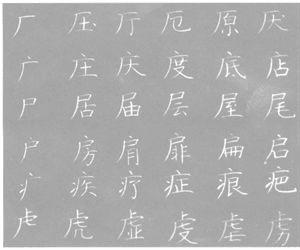 厂 压 厅 厄 原 厌
广 庄 庆 度 底 店
尸 居 届 层 屋 尾
户 房 肩 扉 扁 启
疒 疾 疗 症 痕 疤
虍 虎 虚 虔 虐 虏